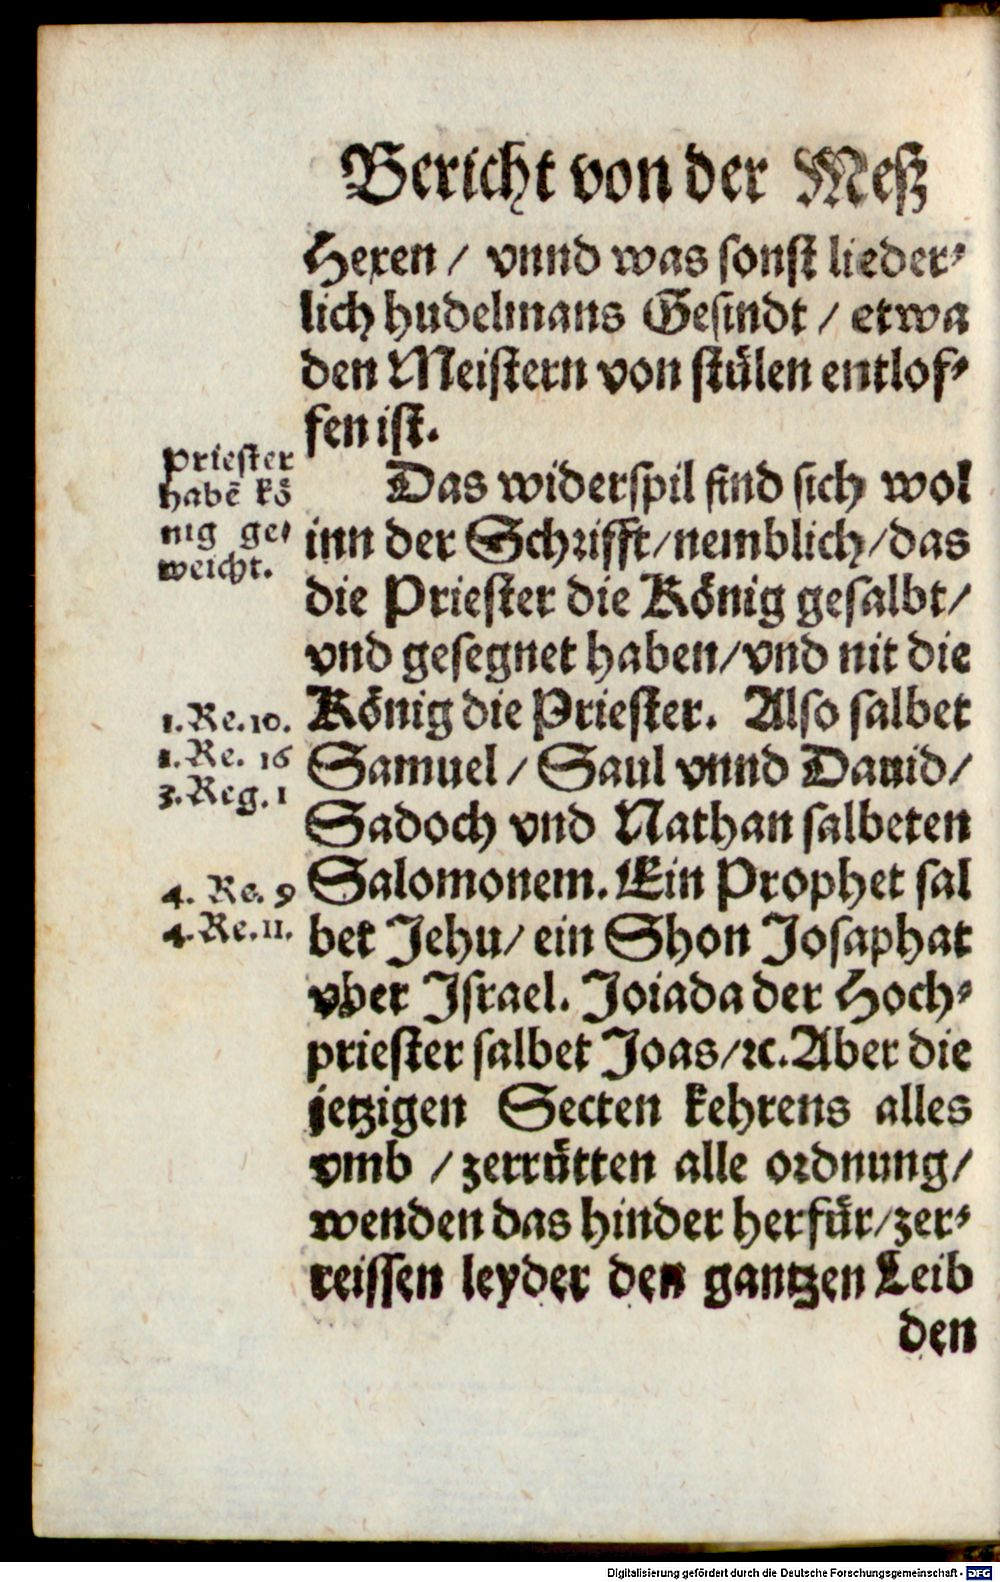 Bericht von der Meß
Hexen / vnnd was sonst lieder-
lich hudelmans Gesindt / etwa
den Meistern von stülen entlof-
fen ist.
Priester
habẽ kö
nig ge-
weicht.
Das widerspil find sich wol
inn der Schrifft/nemblich/das
die Priester die König gesalbt/
vnd gesegnet haben/vnd nit die
König die Priester. Also salbet
1. Re. 10.
1. Re. 16
3. Reg. 1
Samuel / Saul vnnd Dauid/
Sadoch vnd Nathan salbeten
Salomonem. Ein Prophet sal
4. Re. 9
4. Re. 11.
bet Jehu/ ein Shon Josaphat
vber Israel. Joiada der Hoch-
priester salbet Joas/ꝛc. Aber die
jetzigen Secten kehrens alles
vmb / zerrütten alle ordnung/
wenden das hinder herfür/zer-
reissen leyder den gantzen Leib
den
Digitalisierung gefördert durch die Deutsche Forschungsgemeinschaft - DFG